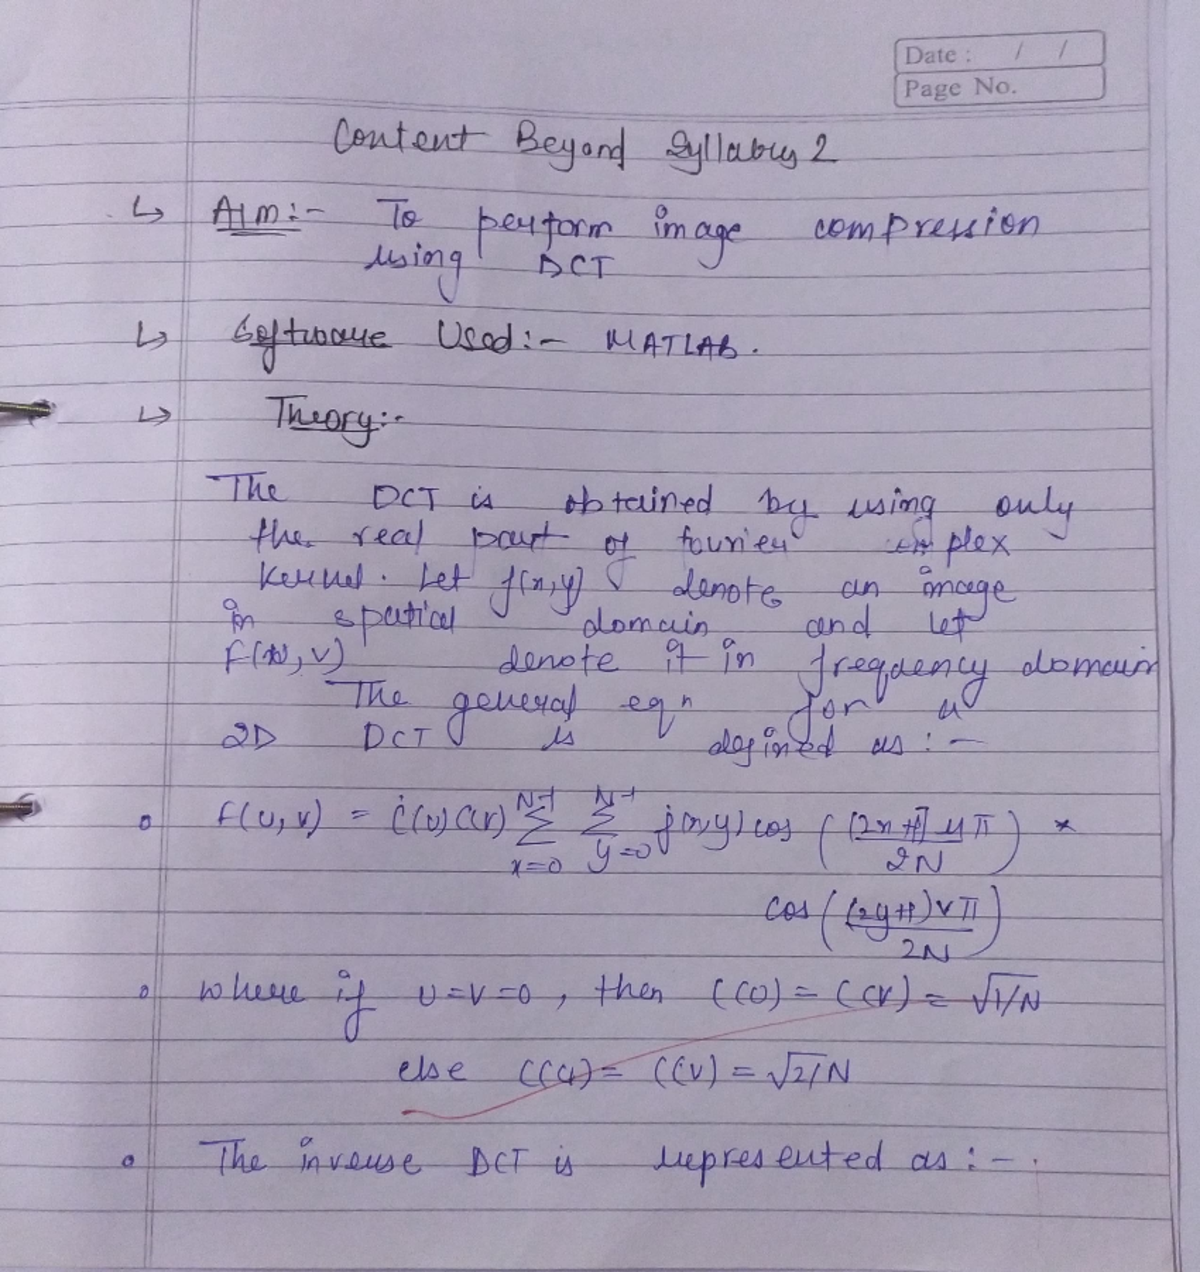 Date : / /
Page No.
Content Beyond Syllabus 2
↳ AIM:- To perform image compression
using DCT
↳ Software Used:- MATLAB.
↳ Theory:-
The DCT is obtained by using only
the real part of fourier complex
Kernel. Let f(x,y) denote an image
in spatial domain and let
F(u,v) denote it in frequency domain
The general eqn for a
2D DCT is defined as :-
o f(u,v) = C(u) C(v) N-1 ∑ x=0 N-1 ∑ y=0 f(x,y) cos ((2x+1)uπ / 2N) *
cos ((2y+1)vπ / 2N)
o where if u=v=0, then C(0) = C(v) = √1/N
else C(u) = C(v) = √2/N
o The inverse DCT is represented as :-